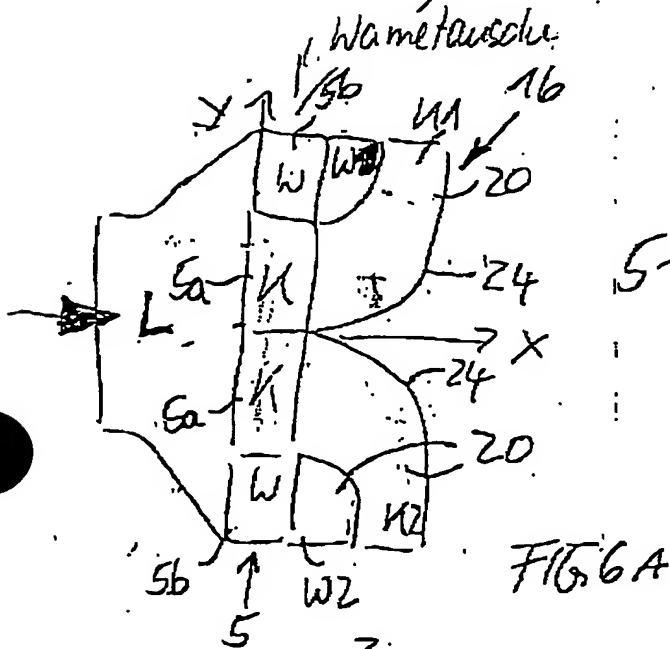 Wametauschu
y 5b K1 16
W W 20
5a K 24
L X
K 24
5a 20
W K2
5b W2 FIG.6A
5